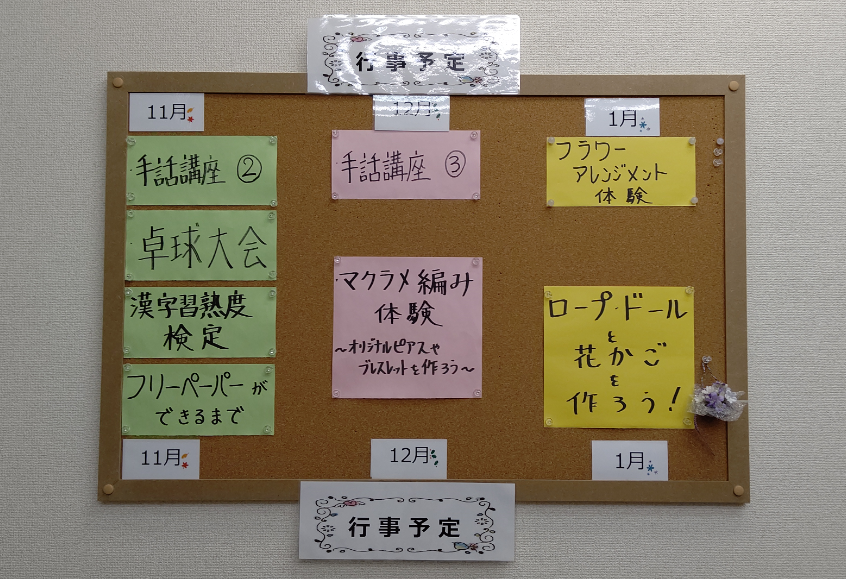 行事予定
11月
手話講座 ②
卓球大会
漢字習熟度
検定
フリーペーパーが
できるまで
11月
12月
手話講座 ③
マクラメ編み
体験
～オリジナルピアスや
ブレスレットを作ろう～
12月
1月
フラワー
アレンジメント
体験
ロープ・ドール
と
花かご
を
作ろう!
1月
行事予定